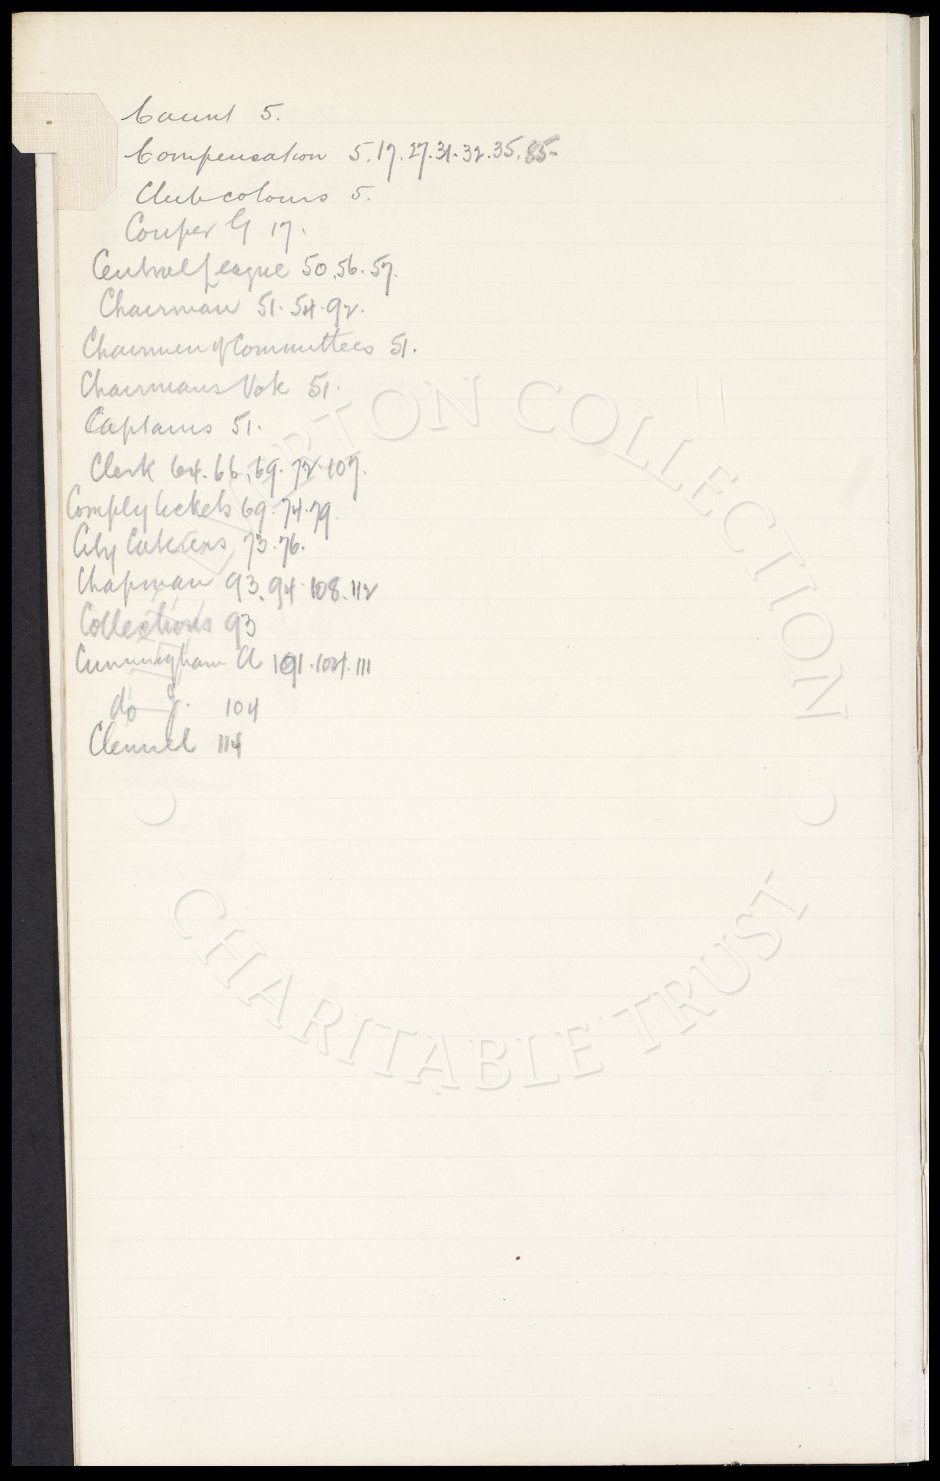 Count 5.
Compensation 5.17.27.31.32.35.85-
Club colours 5.
Couper G 17.
Central League 50.56.57.
Chairman 51.54.92.
Chairmen of Committees 51.
Chairmans Vote 51.
Captains 51.
Clerk 64.66.69.72.107.
Comply tickets 69.74.79.
City Caterers 73.76.
Chapman 93.94.108.112
Collections 93
Cunningham A 101.104.111
do J. 104
Clennell 114
EVERTON COLLECTION
CHARITABLE TRUST